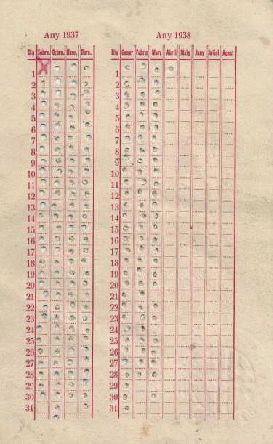 Any 1937 Any 1938
Dia Dia Gener Febrer Març Abril Maig Juny Juliol Agost
1 1
2 2
3 3
4 4
5 5
6 6
7 7
8 8
9 9
10 10
11 11
12 12
13 13
14 14
15 15
16 16
17 17
18 18
19 19
20 20
21 21
22 22
23 23
24 24
25 25
26 26
27 27
28 28
29 29
30 30
31 31